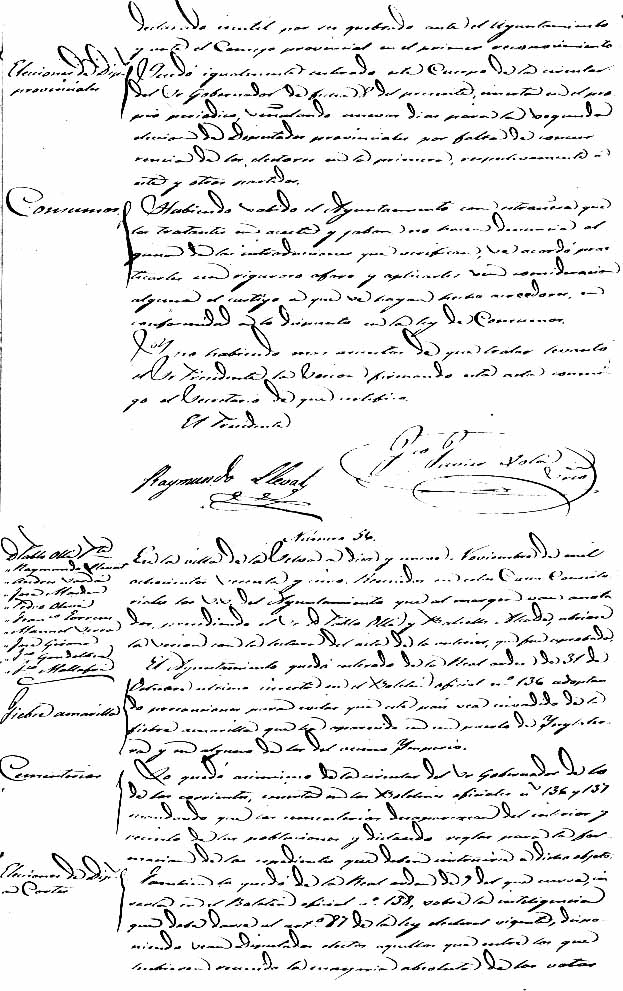 declarado inutil por su quebrado ante el Ayuntamiento
y ante el Consejo provincial en el primer reconocimiento
Elecciones de Dip.s
provinciales
Quedó igualmente enterado este Cuerpo de la circular
del Sr Gobernador de fecha 8 del presente, inserta en el pro
pio periodico, señalando nuevos dias para la segunda
eleccion de Diputados provinciales por falta de concur
rencia de los electores en la primera, respectivamente a
este y otros partidos.
Consumos
Habiendo sabido el Ayuntamiento con estrañeza que
los tratantes en aceite y jabon no hacen denuncia al
guna de las introducciones que verifican, se acordó prac
ticarles un riguroso aforo y aplicarles sin consideracion
alguna el castigo a que se hayan hecho acreedores, en
conformidad a lo dispuesto en la ley de Consumos.
Y no habiendo mas asuntos de que tratar levantó
el Sr Presidente la sesion firmando esta acta conmi
go el Secretario de que certifico.
El Presidente
Raymundo Lleval
Srio
Número 56.
D. Pablo Ollé Pte
Raymundo Lleval
Pedro
Manuel Serra
José
En la villa de la Selva a diez y nueve Noviembre de mil
ochocientos sesenta y cinco. Reunidos en estas Casas Consisto
riales los S.S. del Ayuntamiento que al margen van anota
dos, presidiendo el Sr D Pablo Ollé y Alcalde, abrióse
la sesion con la lectura del acta de la anterior, que fué aprobada.
Fiebre amarilla
El Ayuntamiento quedó enterado de la Real orden de 31 de
Octubre ultimo inserta en el Boletin oficial nº 136 adoptan
do precauciones para evitar que este pais sea invadido de la
fiebre amarilla que ha aparecido en un puerto de Inglater
ra y en alguno de los del vecino Imperio.
Cementerios
Lo quedó asimismo de la circular del Sr Gobernador de
de los corrientes, inserta en los Boletines oficiales nº 136 y 137
que los cementerios desaparezcan del interior y
recinto de las poblaciones y dictando reglas para la for
macion de los espedientes que deben instruirse a dicho objeto.
Elecciones de Dip.s
a Cortes
Tambien lo quedó de la Real orden de 9 del que cursa, in
serta en el Boletin oficial nº 138, sobre la inteligencia
que debe darse al artº 87 de la ley electoral vigente, dispo
niendo sean Diputados electos aquellos que entre los que
hubiesen reunido la mayoria absoluta de los votos